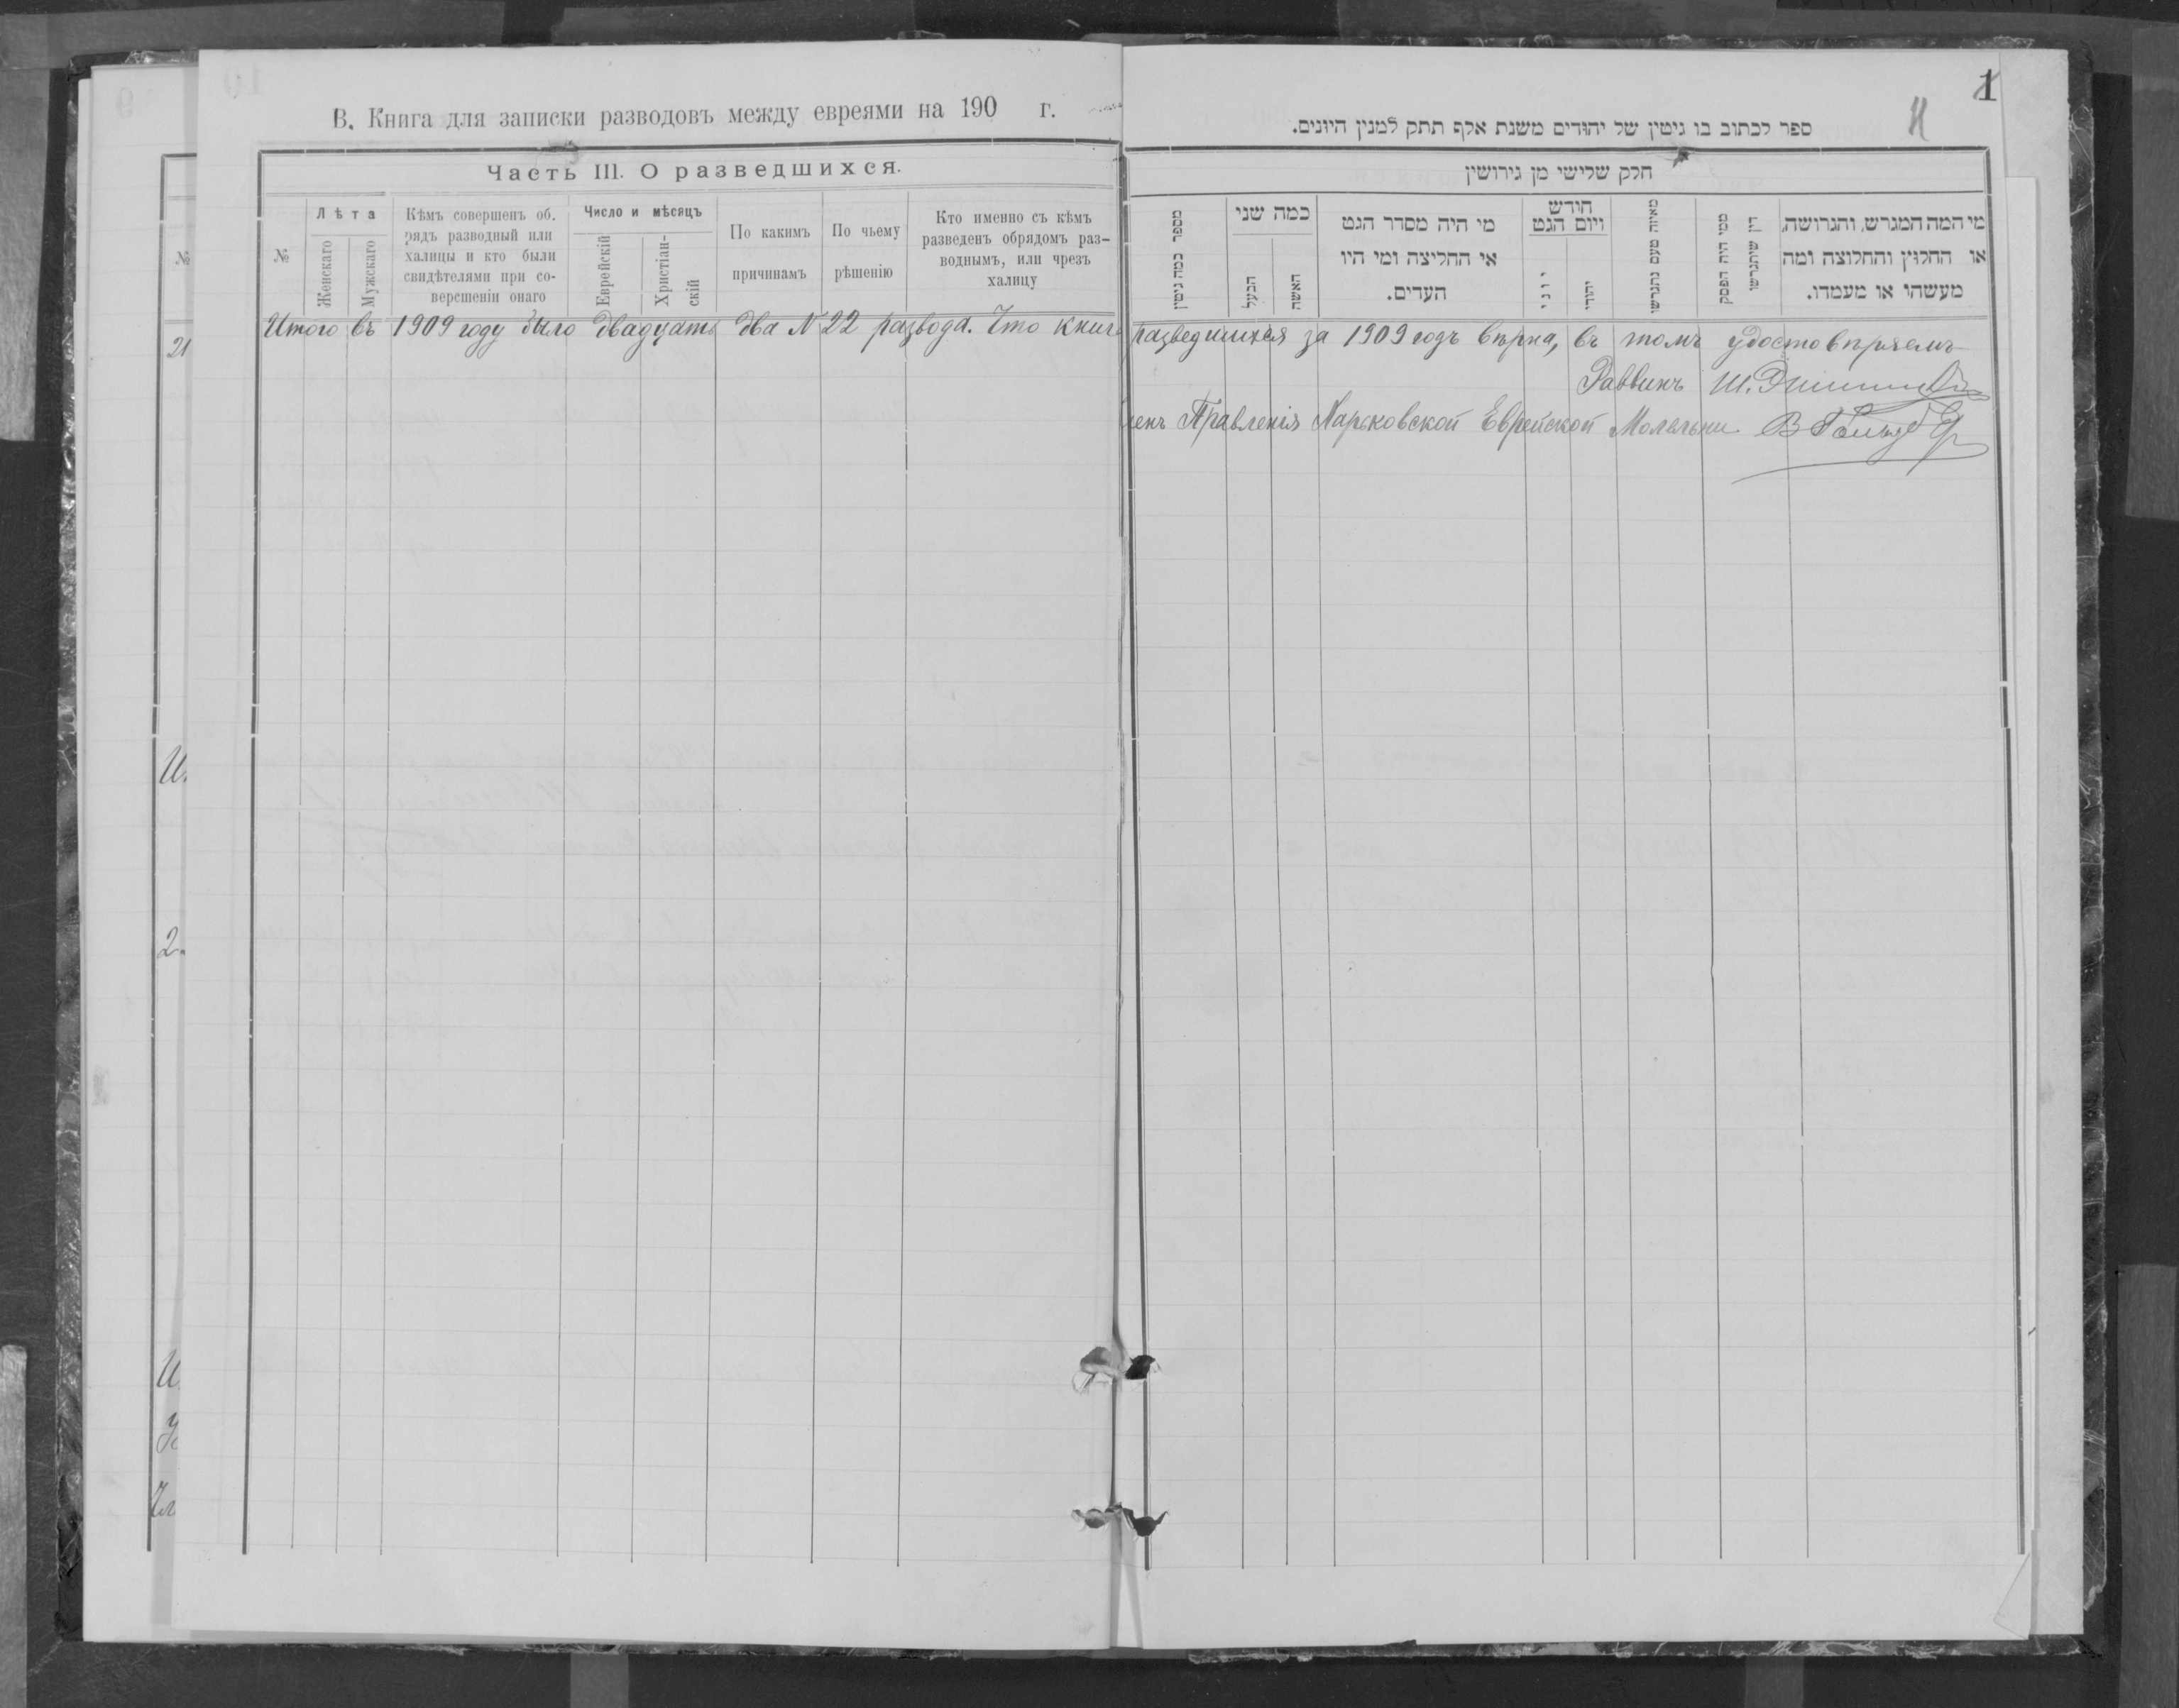 В. Книга для записки разводовъ между евреями на 190 г.
Часть III. О разведшихся.
№
Лѣта
Женскаго
Мужскаго
Кѣмъ совершенъ об-
рядъ разводный или
халицы и кто были
свидѣтелями при со-
вершеніи онаго
Число и мѣсяцъ
Еврейскій
Христіан-
скій
По какимъ
причинамъ
По чьему
рѣшенію
Кто именно съ кѣмъ
разведенъ обрядомъ раз-
воднымъ, или чрезъ
халицу
1
11
ספר לכתוב בו גיטין של יהודים משנת אלף תתק למנין היונים.
חלק שלישי מן גירושין
מספר כמה גיטין
כמה שני
הבעל
האשה
מי היה מסדר הגט
אי החליצה ומי היו
העדים.
חודש
ויום הגט
יוני
יהודי
מאיזה טעם נתגרשו
ממי היה הפסק
דין שיתגרשו
מי המה המגרש, והגרושה,
או החלוץ והחלוצה ומה
מעשהו או מעמדו.
Итого въ 1909 году было двадцать два № 22 развода. Что книга разведшихся за 1909 годъ вѣрна, въ томъ удостовѣряемъ
Раввинъ Ш.
членъ Правленія Харьковской Еврейской Молельни В
№
21
И.
2.
И
Чл